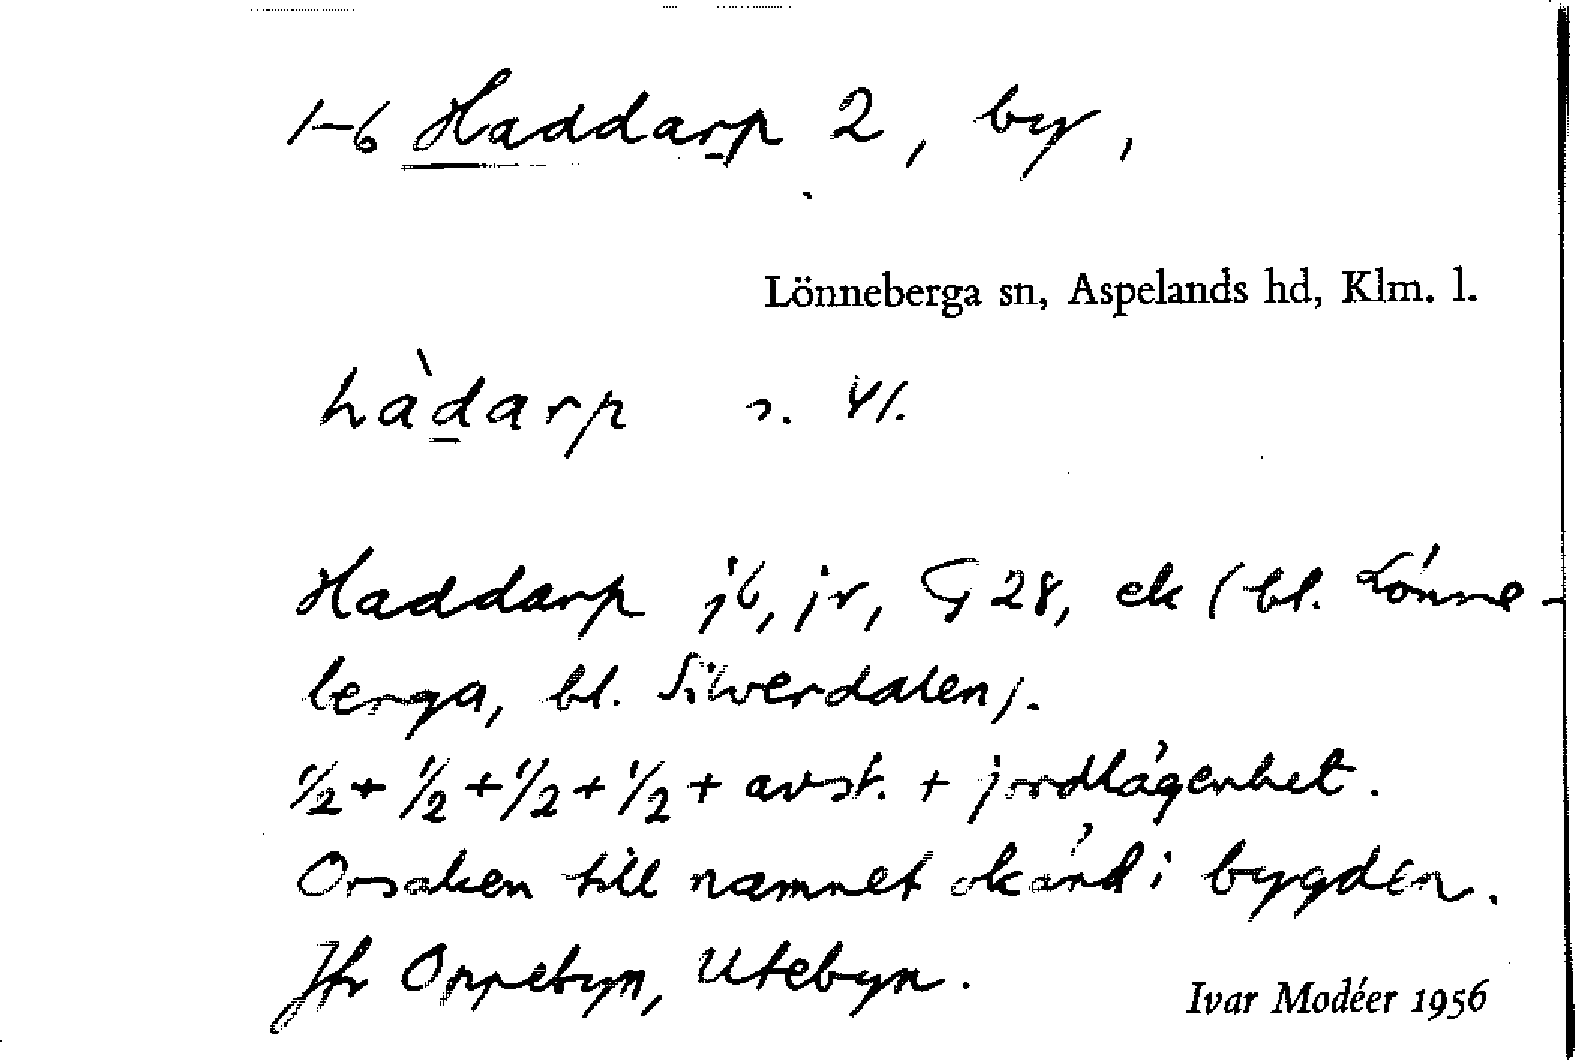 1-6 Haddarp 2, by,
Lönneberga sn, Aspelands hd, Klm. l.
hàdarp
Haddarp jb, jr, G 28, ek (bl. Lönne-
berga, bl. Silverdalen).
1/2 + 1/2 + 1/2 + 1/2 + avst. + jordlägenhet.
Orsaken till namnet okänd i bygden.
Jfr Oppebyn, Utebyn.
Ivar Modéer 1956